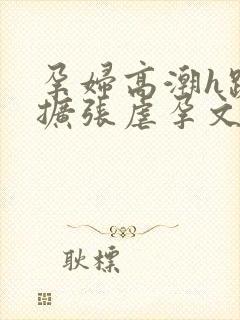 孕婦高潮h
擴張虐孕文
耿標